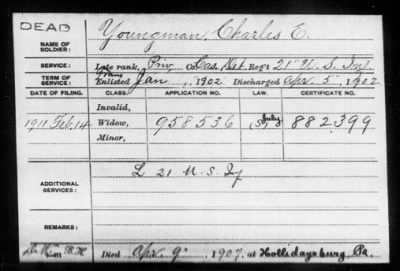 DEAD
NAME OF SOLDIER: Youngman, Charles E.
SERVICE: Late rank, Priv Cas. Det. Reg't 21" U. S. Inf.
TERM OF SERVICE: Enlisted Jan , 1902 Discharged Apr. 5" , 1902
DATE OF FILING. CLASS. APPLICATION NO. LAW. CERTIFICATE NO.
Invalid,
1911 Feb. 14 Widow, 958536 July 882399
Minor,
ADDITIONAL SERVICES: L 21 U. S. Iy
REMARKS:
Died Apr. 9" , 1907, at Hollidaysburg Pa.